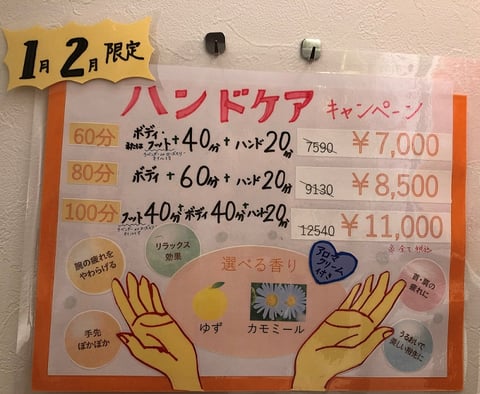 1月2月限定
ハンドケア キャンペーン
60分 ボディ・または フット+40分+ハンド20分 7590 ¥7,000
80分 ボディ+60分+ハンド20分 9130 ¥8,500
100分 フット40分+ボディ40分+ハンド20分 12540 ¥11,000
※全て税込
腕の疲れを
やわらげる
リラックス
効果
選べる香り
アロマ
クリーム
付き
首・肩の
疲れに
手先
ぽかぽか
ゆず
カモミール
うるおいで
美しい指先に